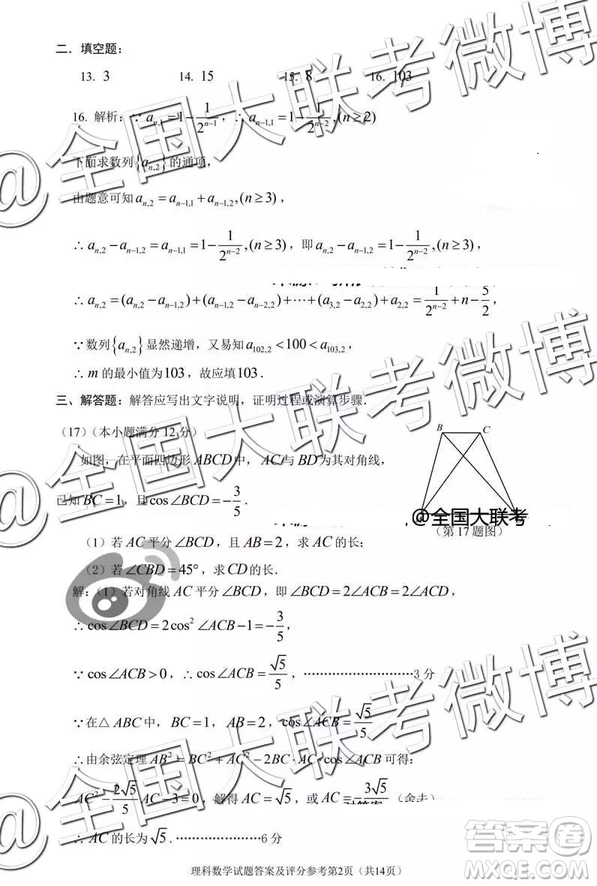 二．填空题：
13. 3 14. 15 15. 8 16. 103
16. 解析：∵ a_{n,1}=1-\frac{1}{2^{n-1}}，∴ a_{n-1,1}=1-\frac{1}{2^{n-2}},(n≥2)
下面求数列{a_{n,2}}的通项，
由题意可知 a_{n,2}=a_{n-1,1}+a_{n-1,2},(n≥3)，
∴ a_{n,2}-a_{n-1,2}=a_{n-1,1}=1-\frac{1}{2^{n-2}},(n≥3)，即 a_{n,2}-a_{n-1,2}=1-\frac{1}{2^{n-2}},(n≥3)，
∴ a_{n,2}=(a_{n,2}-a_{n-1,2})+(a_{n-1,2}-a_{n-2,2})+⋯+(a_{3,2}-a_{2,2})+a_{2,2}=\frac{1}{2^{n-2}}+n-\frac{5}{2}，
∵ 数列{a_{n,2}}显然递增，又易知 a_{102,2}<100<a_{103,2}，
∴ m 的最小值为103，故应填103．
三、解答题：解答应写出文字说明，证明过程或演算步骤．
（17）（本小题满分12分）
如图，在平面四边形ABCD中，AC与BD为其对角线，
已知BC=1，且cos∠BCD=-\frac{3}{5}．
B C
（第17题图）
（1）若AC平分∠BCD，且AB=2，求AC的长；
（2）若∠CBD=45°，求CD的长．
解：（1）若对角线AC平分∠BCD，即∠BCD=2∠ACB=2∠ACD，
∴ cos∠BCD=2cos²∠ACB-1=-\frac{3}{5}，
∵ cos∠ACB>0，∴ cos∠ACB=\frac{√5}{5}，⋯⋯⋯⋯⋯⋯⋯3分
∵ 在△ABC中，BC=1，AB=2，cos∠ACB=\frac{√5}{5}
∴ 由余弦定理 AB²=BC²+AC²-2BC·AC·cos∠ACB可得：
AC²-\frac{2√5}{5}AC-3=0，解得 AC=√5，或 AC=-\frac{3√5}{5}（舍去）
∴ AC的长为√5．⋯⋯⋯⋯⋯6分
理科数学试题答案及评分参考第2页（共14页）
@全国大联考微博
@全国大联考微博
@全国大联考
答案圈
MXQE.COM